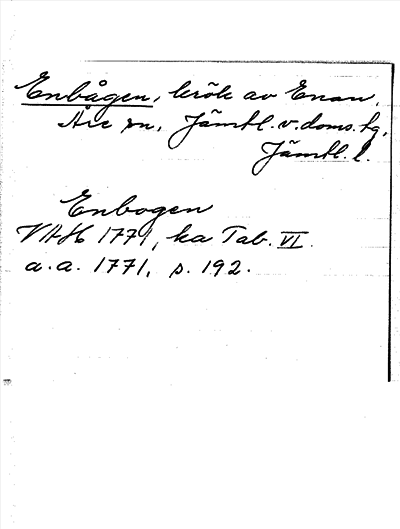 Enbågen, krök av Enan,
Åre sn, Jämtl. v. doms. tg,
Jämtl. l.
Enbogen
VAH 1771, ka Tab. VI.
a. a. 1771, s. 192.